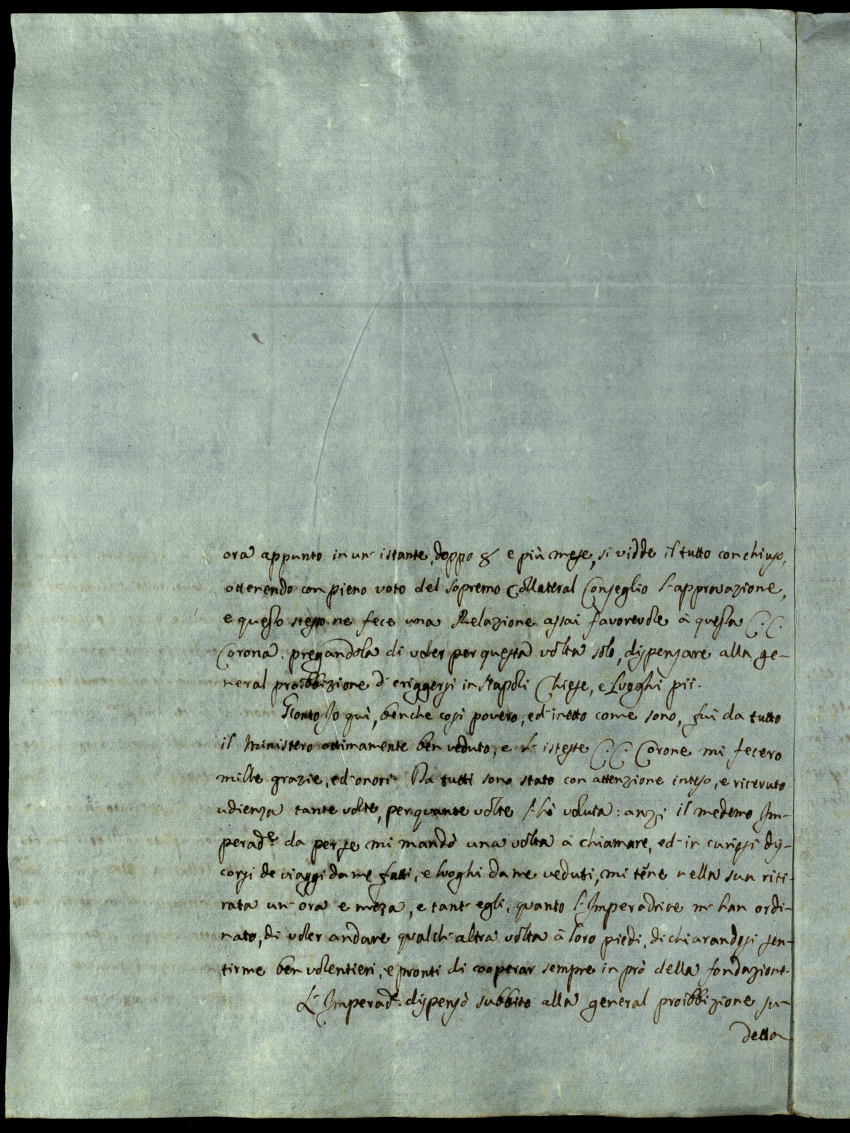 ora appunto in un' istante, doppo 8 e più mese, si vidde il tutto conchiuso,
ottenendo con pieno voto del sopremo Collateral Conseglio l'approvazione,
e questo stesso ne fece una Relazione assai favorevole à questa C.C.
Corona. pregandola di voler per questa volta solo, dispensare alla ge-
neral proibbizione d'eriggersi in Napoli Chiese, e Luoghi pii.
Gionto Io quì, benche così povero, ed inetto come sono, fui da tutto
il Ministero ottimamente ben veduto, e l' istesse C.C. Corone mi fecero
mille grazie, ed onori. Da tutti sono stato con attenzione inteso, e ricevuto
udienza tante volte, per quante volte l'hò voluta: anzi il medemo Im-
perad.e da per se mi mandò una volta à chiamare, ed in curiosi dis-
corsi de viaggi da me fatti, e luoghi da me veduti, mi tene nella sua riti-
rata un' ora e meza, e tant' egli, quanto l'Imperadrice m' han ordi-
nato, di voler andare qualch' altra volta à loro piedi, dichiarandosi sen-
tirme ben volentieri, e pronti di cooperar sempre in prò della fondazione.
L'Imperad.e dispensò subbito alla general proibbizione su-
detta